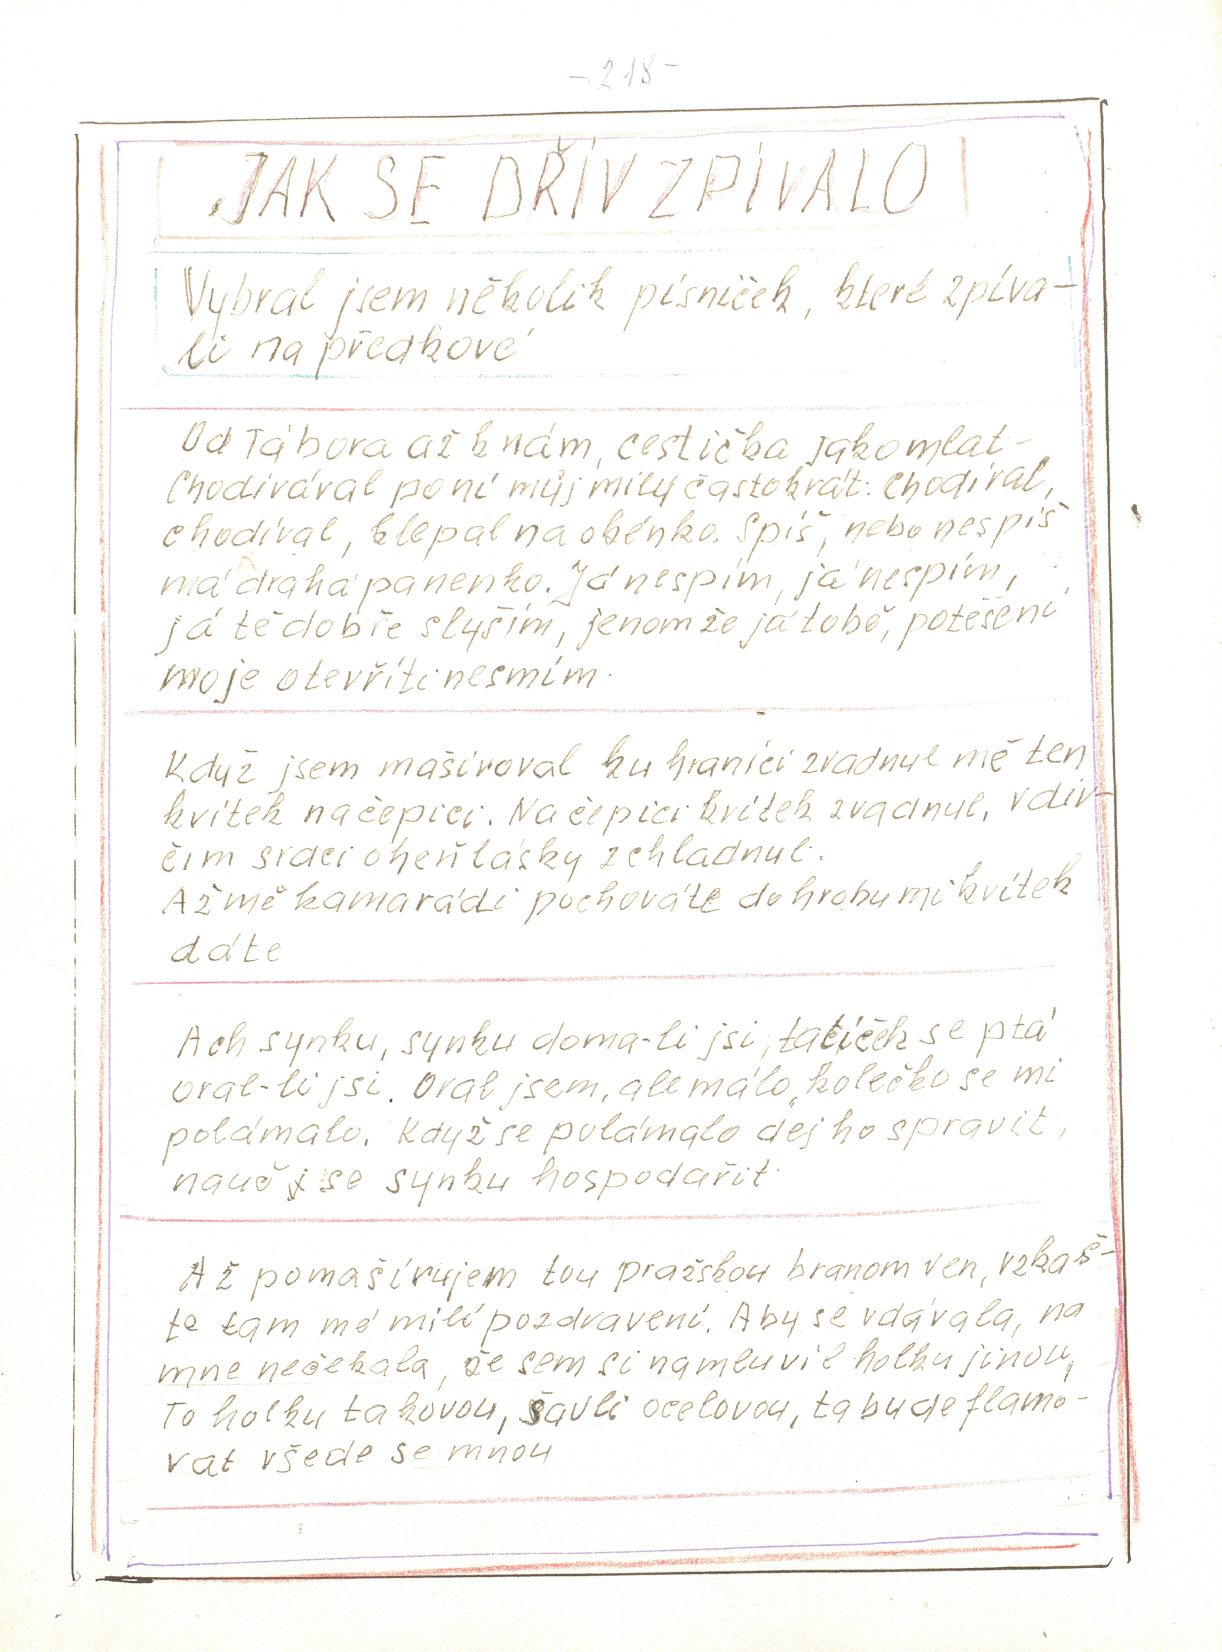 - 218 -
JAK SE DŘÍV ZPÍVALO
Vybral jsem několik písniček, které zpíva-
li na předkové
Od Tábora až k nám, cestička jako mlat-
Chodívával po ní můj milý častokrát: Chodíval,
chodíval, klepal na okénko. Spíš, nebo nespíš
má drahá panenko. Já nespím, já nespím,
já tě dobře slyším, jenomže já tobě, potěšení
moje otevříti nesmím.
Když jsem mašíroval ku hranici zvadnul mě ten
kvítek na čepici. Na čepici kvítek zvadnul, v dív-
čím srdci oheň lásky zchladnul.
Až mě kamarádi pochováte do hrobu mi kvítek
dáte
Ach synku, synku doma-li jsi, tatíček se ptá
oral-li jsi. Oral jsem, ale málo, kolečko se mi
polámalo. Když se polámalo dej ho spravit,
nauč se synku hospodařit.
Až pomašírujem tou pražskou branom ven, vzkaš-
te tam mé milí pozdravení. Aby se vdávala, na
mne nečekala, že sem si namluvil holku jinou,
To holku takovou, šavli ocelovou, ta bude flámo-
vat všede se mnou